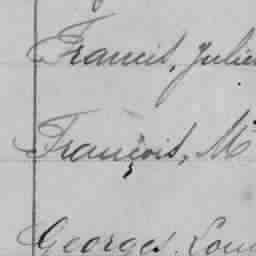 Francis, Julie
François, M
Georges, Loui